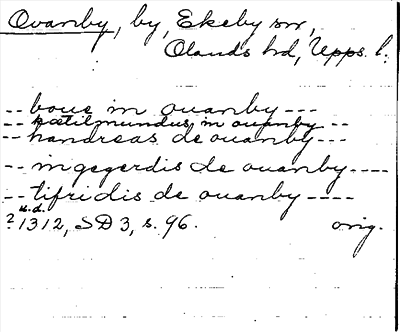 Ovanby, by, Ekeby sn,
Olands hd, Upps. l.
-- boue in ouanby ---
-- kætilmundus in ouanby --
-- handreas de ouanby ---
-- ingegerdis de ouanby ----
-- tifridis de ouanby ----
u.d.
? 1312, SD 3, s. 96. orig.